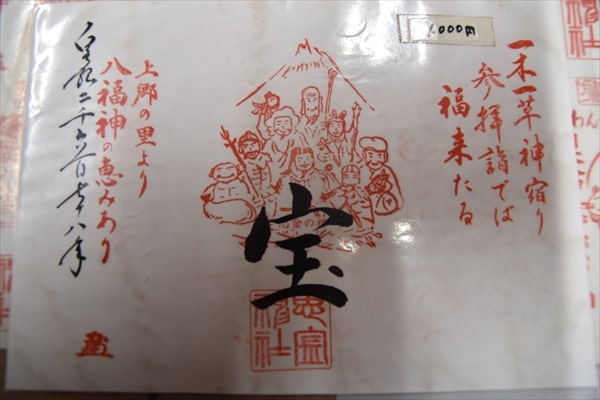 1,000円
一木一草神宿り
参拝詣でば
福来たる
宝
上郷の里より
八福神の恵みあり
皇紀二千六百七十八年